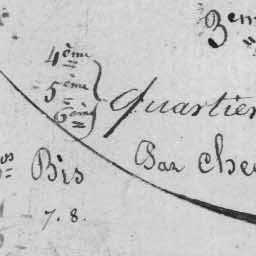 3em
4ème
5ème
6ème
Quartier
Bar che
os
Bis
7. 8.